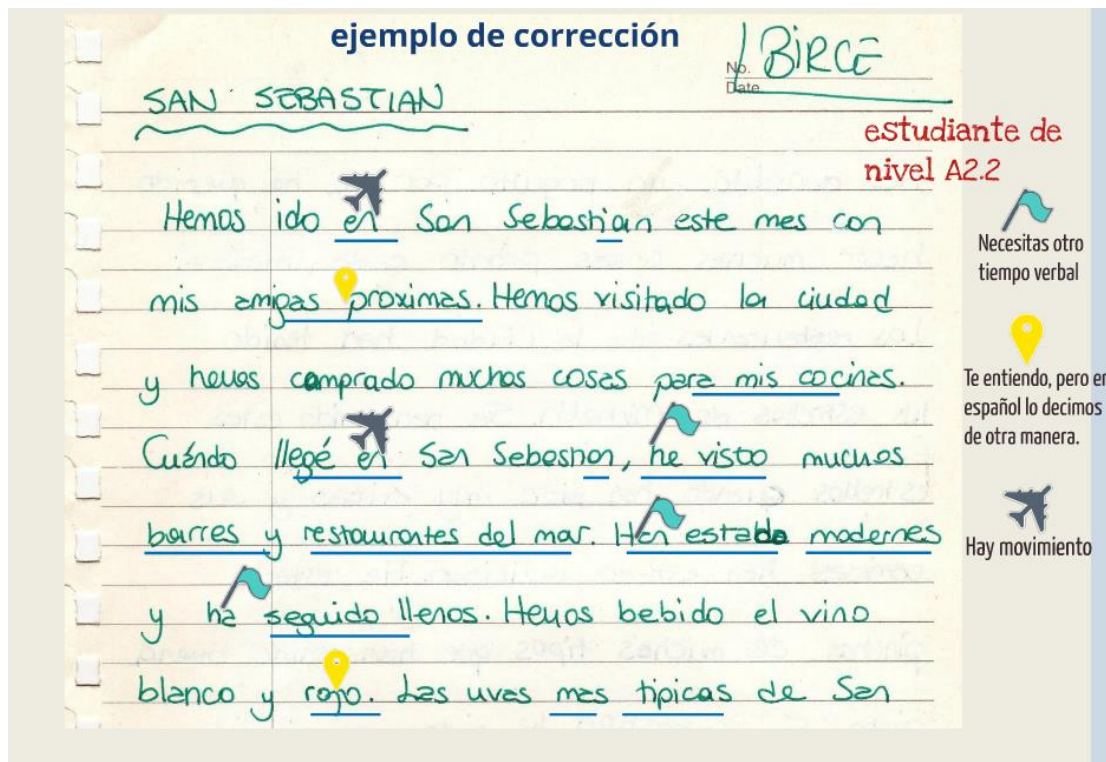 ejemplo de corrección
No.
Date.
/ BiRCE
SAN SEBASTIAN
estudiante de
nivel A2.2
Hemos ido en San Sebastian este mes con
mis amigas proximas. Hemos visitado la ciudad
y hemos comprado muchas cosas para mis cocinas.
Cuándo llegé en San Sebastian, he visto muchos
barres y restaurantes del mar. Han estado modernes
y ha seguido llenos. Hemos bebido el vino
blanco y rojo. Las uvas mas tipicas de San
Necesitas otro
tiempo verbal
Te entiendo, pero en
español lo decimos
de otra manera.
Hay movimiento